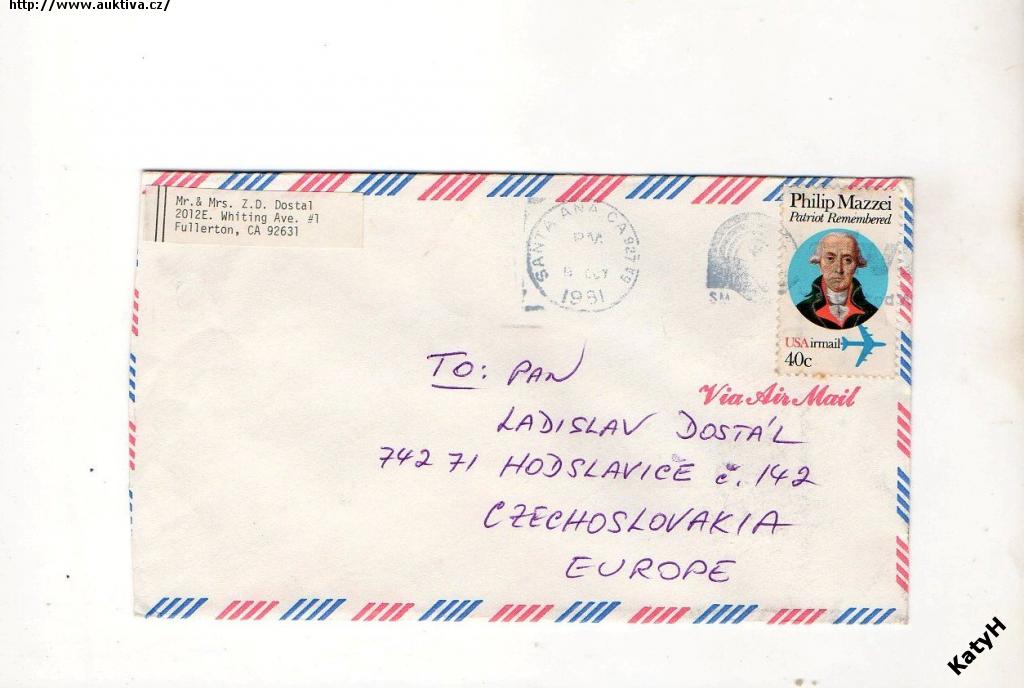 http://www.auktiva.cz/
Mr.& Mrs. Z.D. Dostal
2012E. Whiting Ave. #1
Fullerton, CA 92631
SANTA ANA CA
PM
1981
SM
Philip Mazzei
Patriot Remembered
USAirmail
40c
Via Air Mail
TO: PAN
LADISLAV DOSTÁL
742 71 HODSLAVICE č. 142
CZECHOSLOVAKIA
EUROPE
KatyH